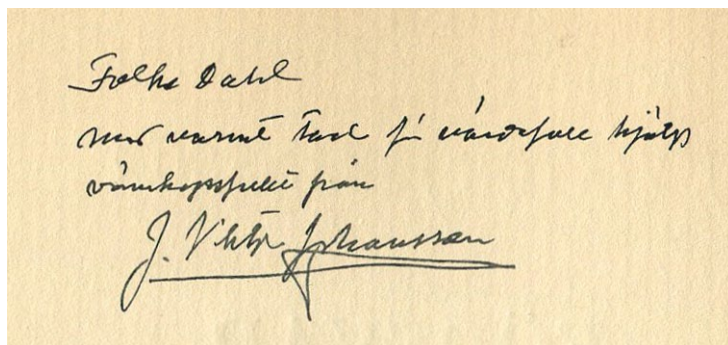 Folke Dahl
med varmt tack för värdefull hjälp
vänskapsfullt från
J. Viktor Johansson